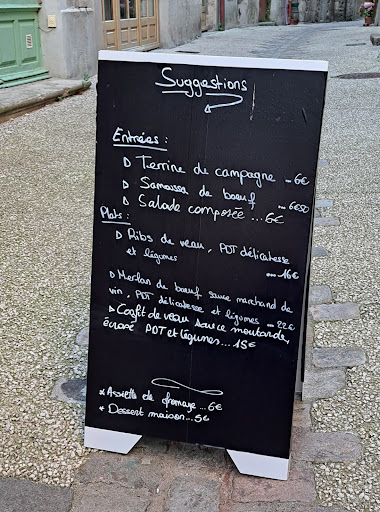 Suggestions
Entrées :
D Terrine de campagne - 6€
D Samoussa de bœuf ... 6€50
D Salade composée ... 6€
Plats :
D Ribs de veau, PDT délicatesse
et légumes ... 16€
D Merlan de bœuf sauce marchand de
vin, PDT délicatesse et légumes - 22€
D Confit de veau sauce moutarde,
écrasé PDT et légumes... 15€
* Assiette de fromage ... 6€
* Dessert maison ... 5€